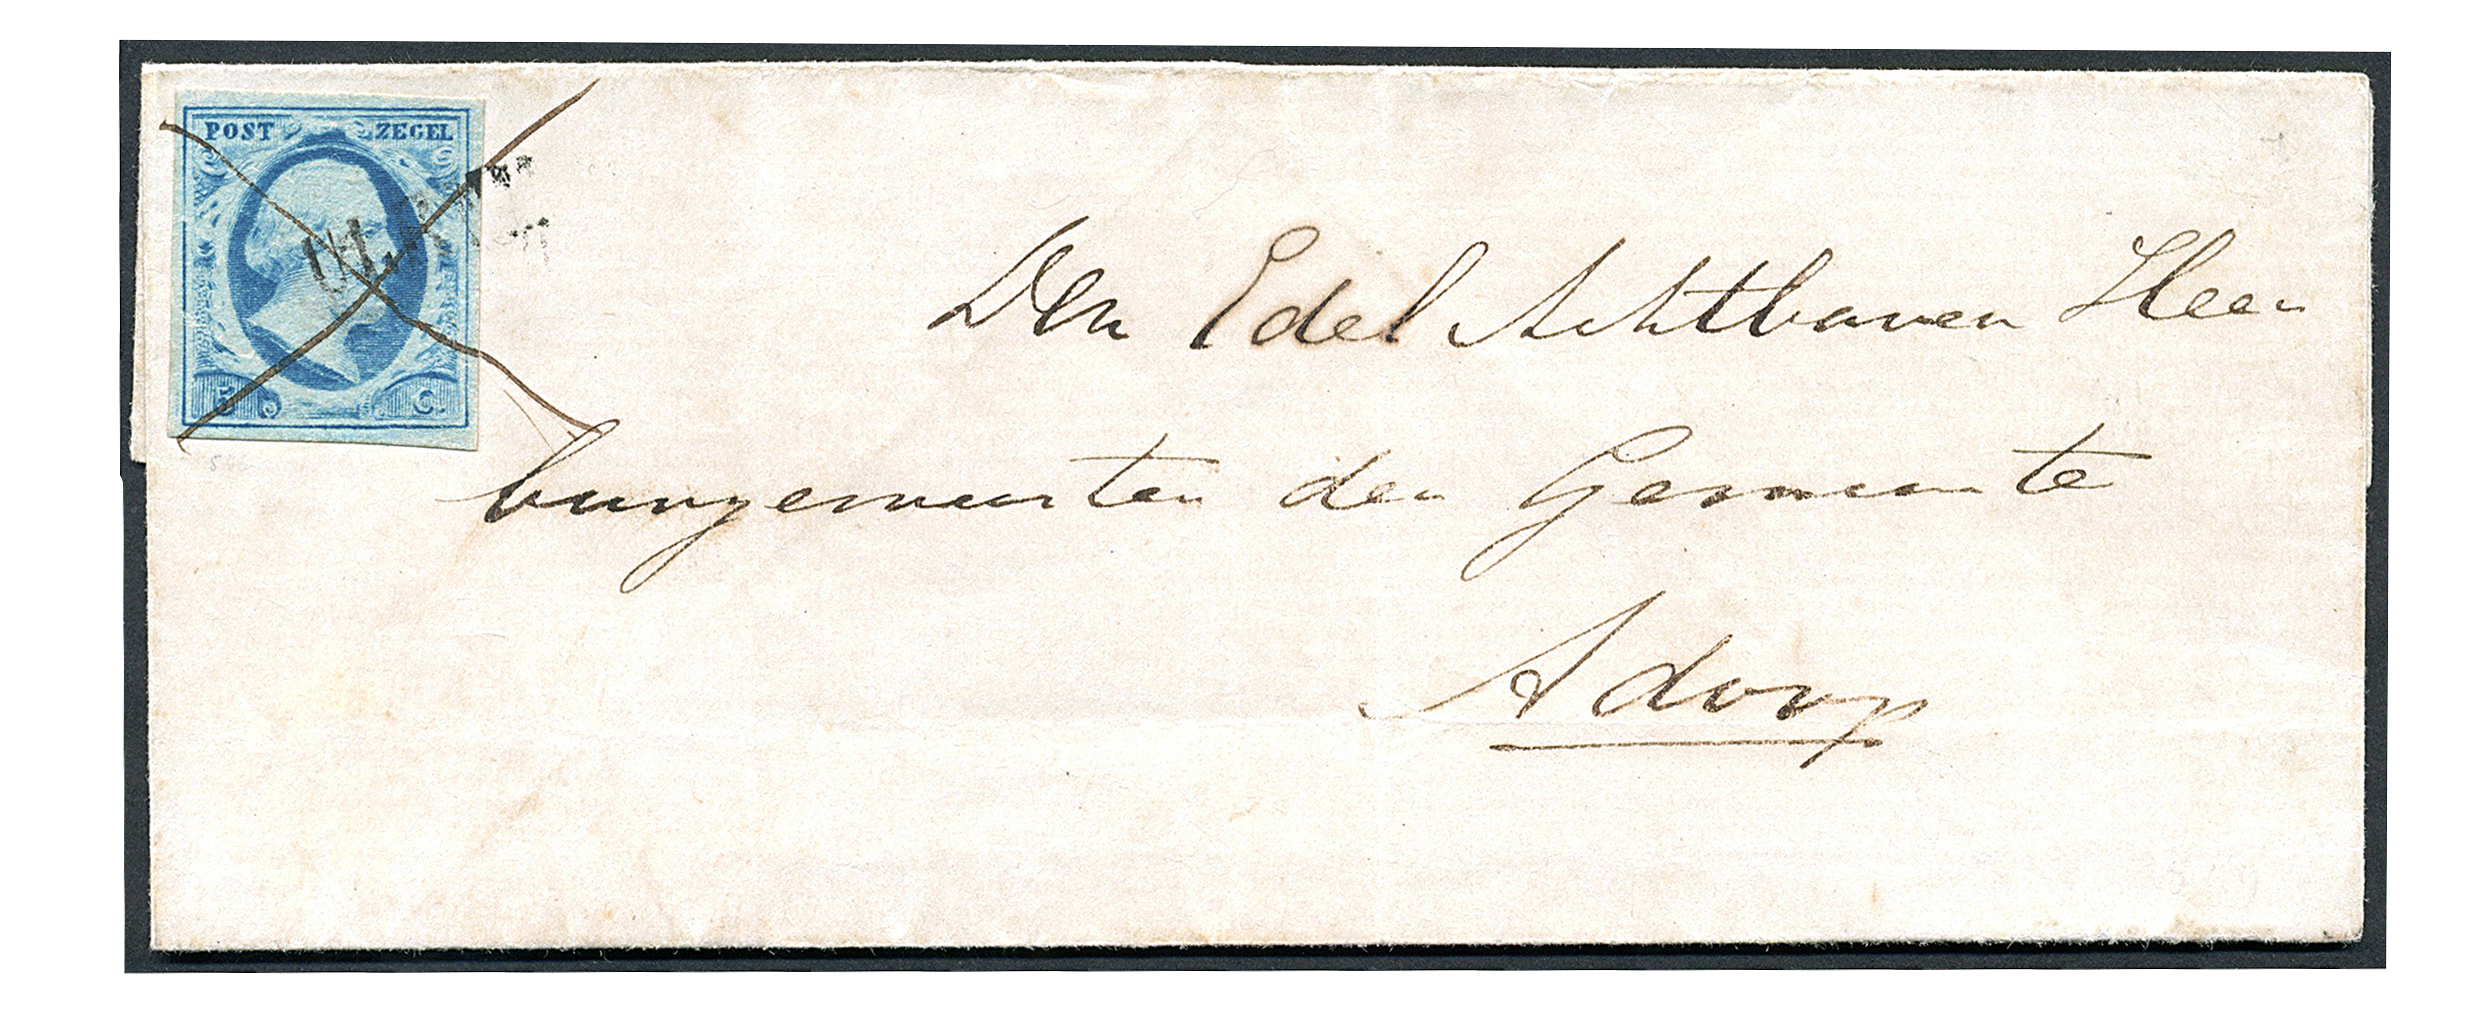 POST ZEGEL
5 C.
Den Edel Achtbaren Heer
burgemeester der Gemeente
Adorp